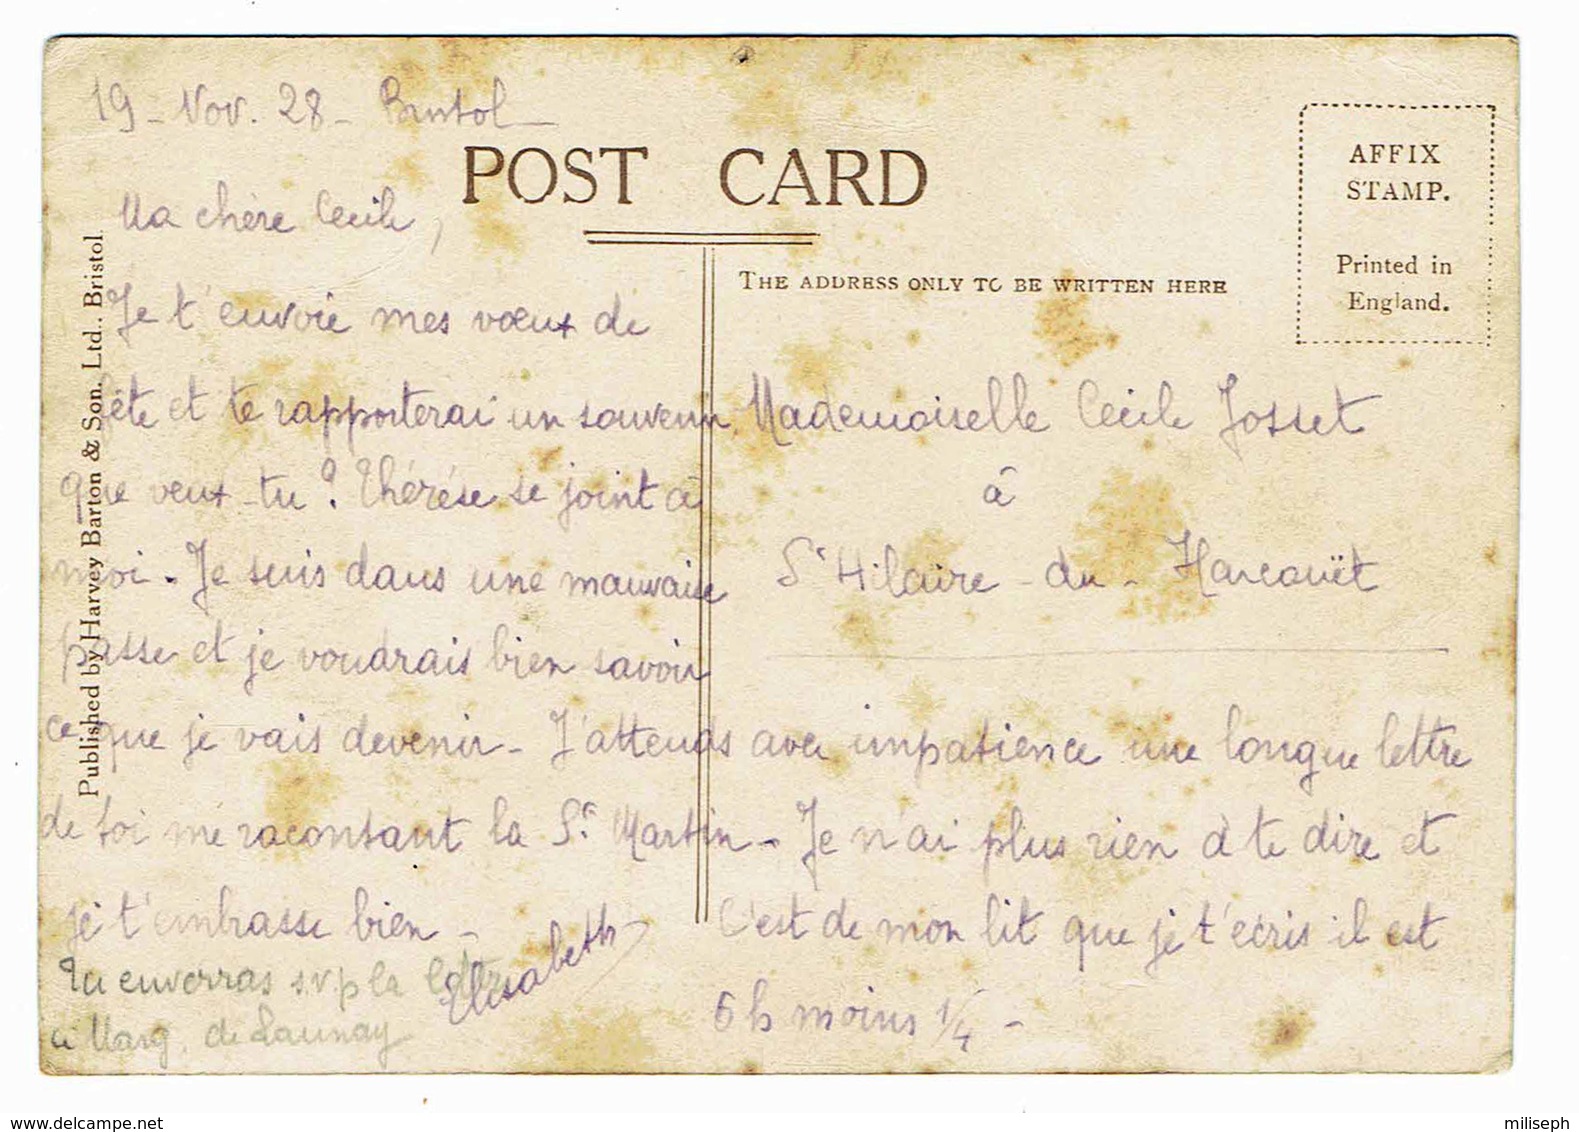 19 - Nov. 28 - Bristol -
POST CARD
AFFIX
STAMP.
Printed in
England.
THE ADDRESS ONLY TO BE WRITTEN HERE
Published by Harvey Barton & Son. Ltd.. Bristol
Ma chère Cecile,
Je t'envoie mes vœux de
fête et te rapporterai un souvenir.
que veux-tu? Thérése se joint à
moi. Je suis dans une mauvaise
passe et je voudrais bien savoir
Mademoiselle Cecile Josset
à
St Hilaire - du - Harcouët
ce que je vais devenir - J'attends avec impatience une longue lettre
de toi me racontant la St Martin - Je n'ai plus rien à te dire et
je t'embrasse bien -
Elisabeth
C'est de mon lit que je t'ecris il est
6 h moins 1/4 -
Tu enverras s.v.p la lettre
à Marg. de Launay
www.delcampe.net
miliseph